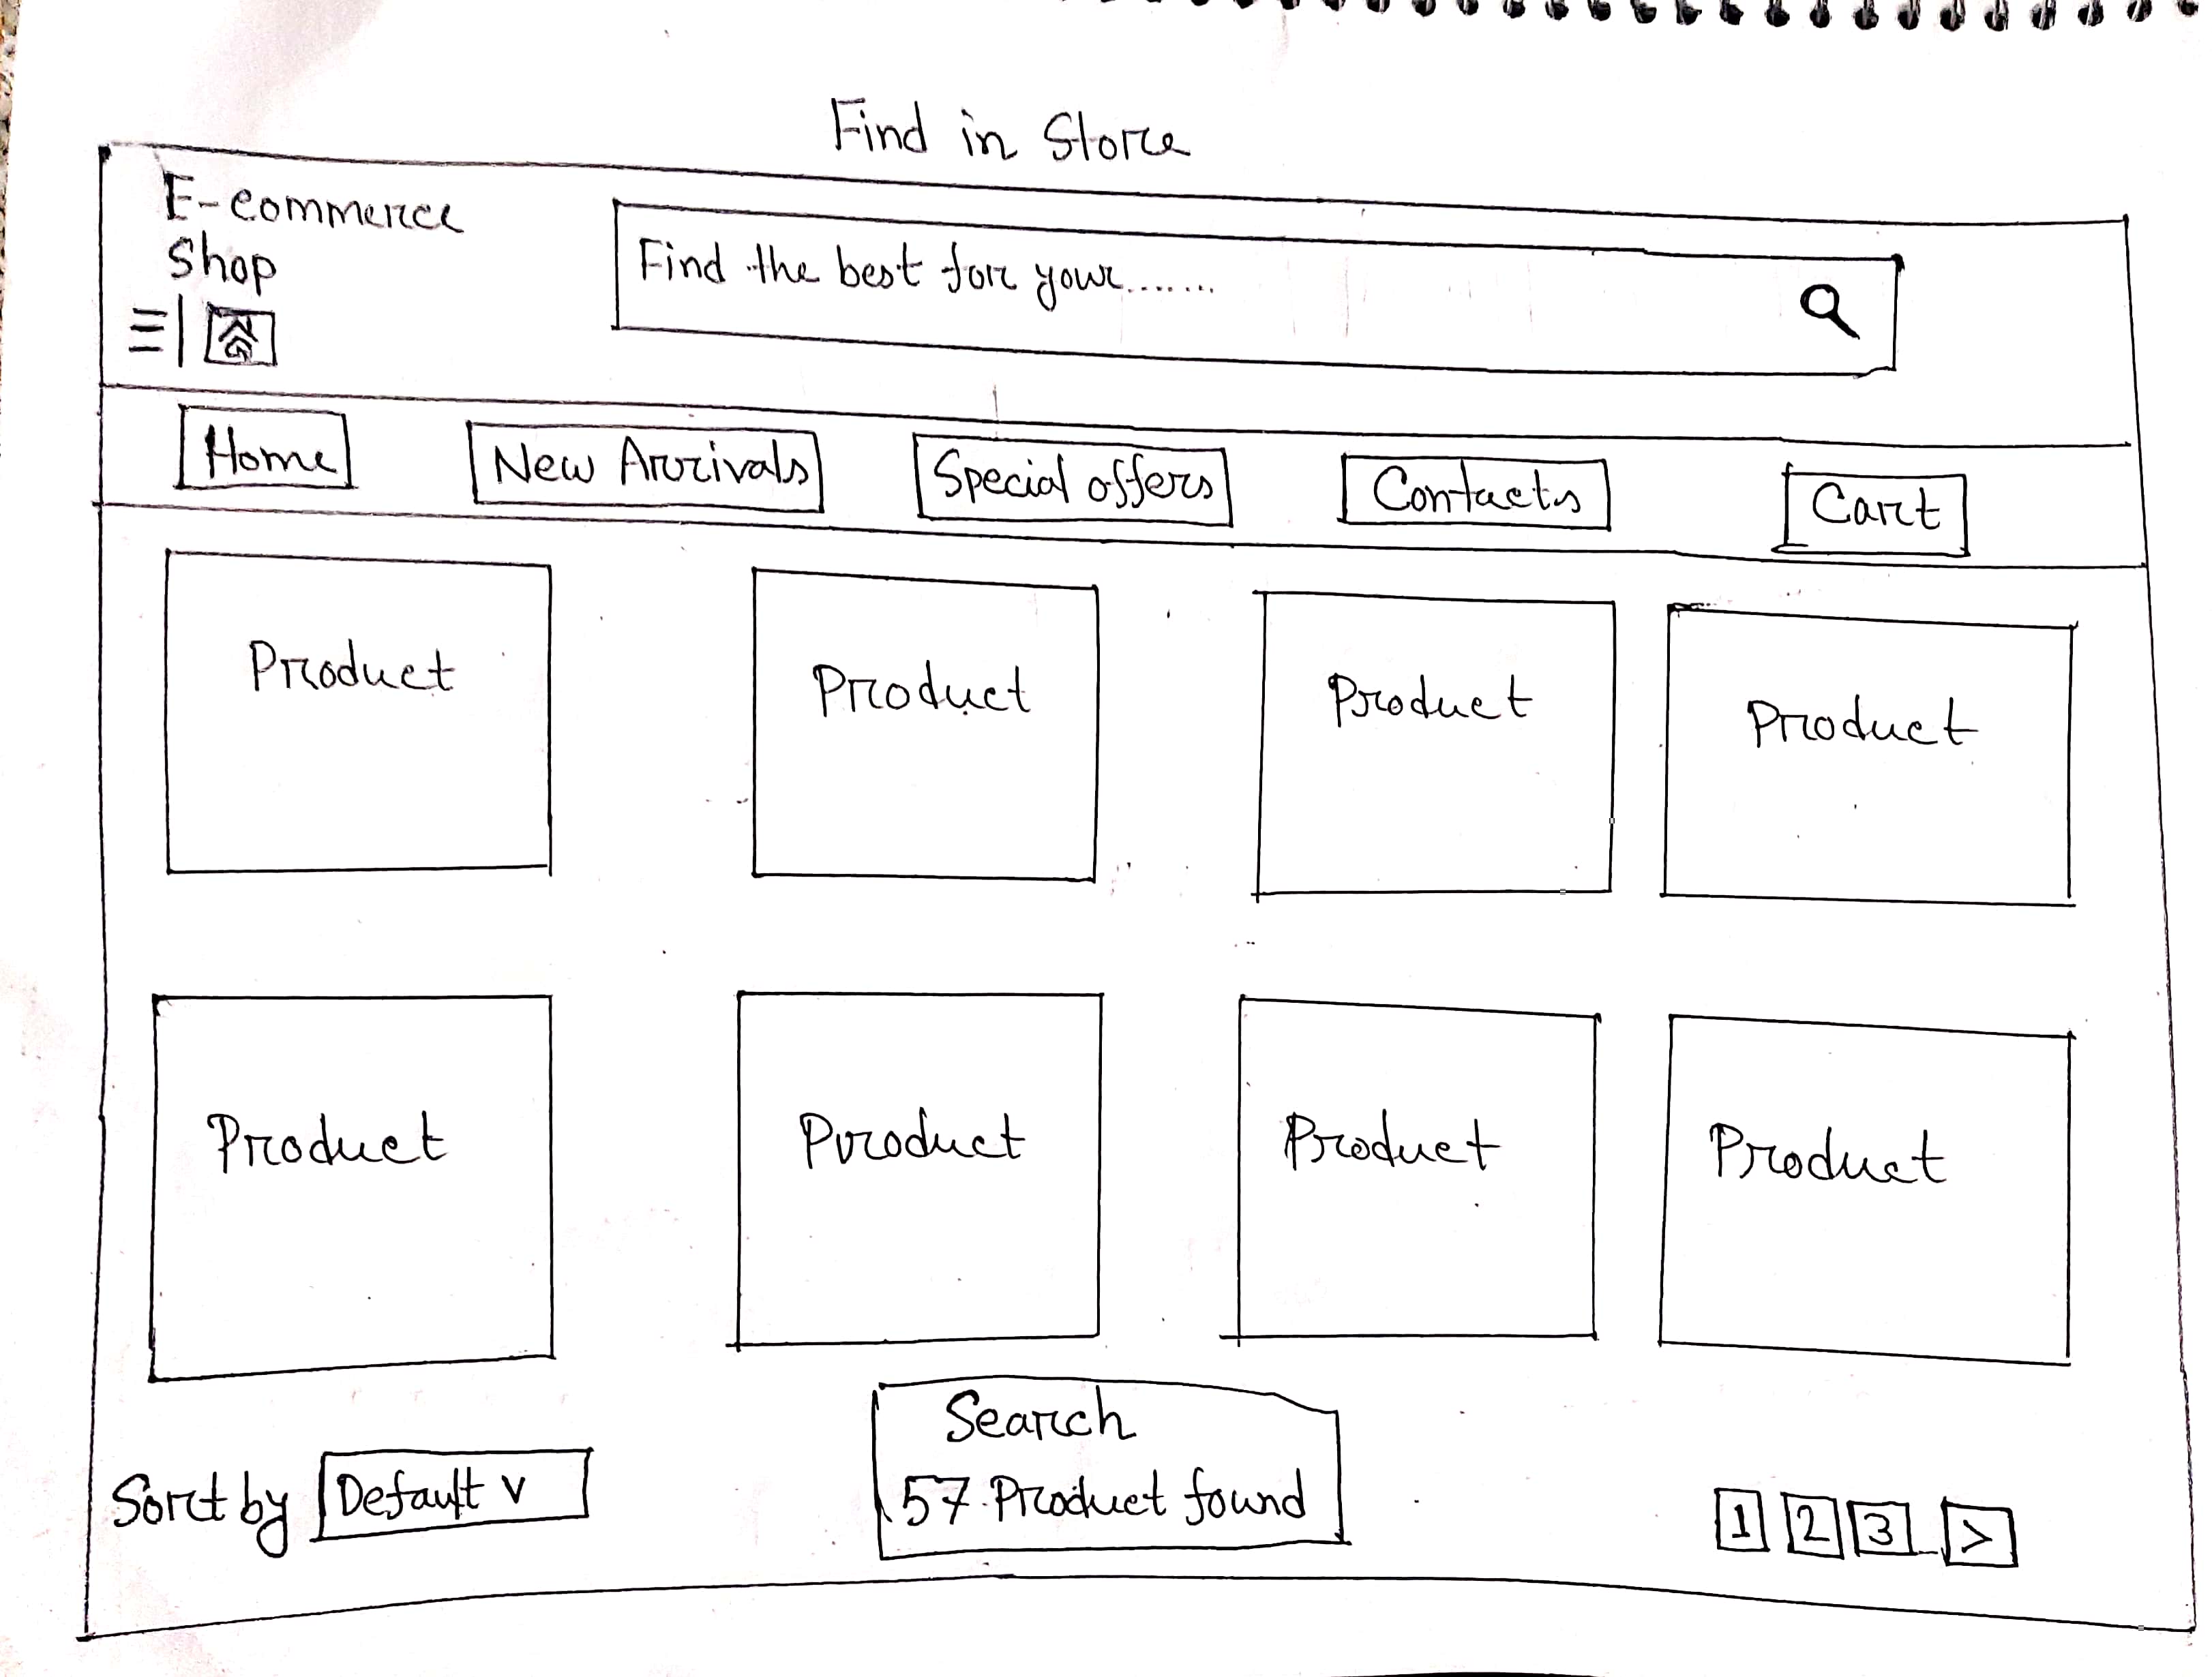 Find in Store
E-commerce
Shop
Find the best for your.......
Home New Arrivals Special offers Contacts Cart
Product Product Product Product
Product Product Product Product
Search
Sort by Default v 57 Product found 1 2 3 >